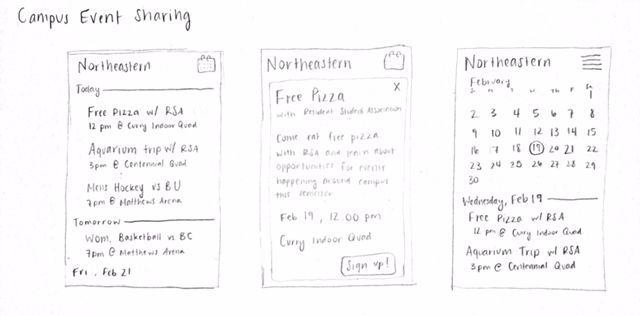 Campus Event Sharing
Northeastern
Today
Free Pizza w/ RSA
12 pm @ Curry Indoor Quad
Aquarium trip w/ RSA
3pm @ Centennial Quad
Mens Hockey vs BU
7pm @ Matthews Arena
Tomorrow
Wom. Basketball vs BC
7pm @ Matthews Arena
Fri, Feb 21
Northeastern
X
Free Pizza
with Resident Student Association
Come eat free pizza
with RSA and learn about
opportunities for events
happening around campus
this semester
Feb 19, 12:00 pm
Curry Indoor Quad
Sign up!
Northeastern
February
S M T W Th F Sa
1
2 3 4 5 6 7 8
9 10 11 12 13 14 15
16 17 18 19 20 21 22
23 24 25 26 27 28 29
30
Wednesday, Feb 19
Free Pizza w/ RSA
12 pm @ Curry Indoor Quad
Aquarium Trip w/ RSA
3pm @ Centennial Quad